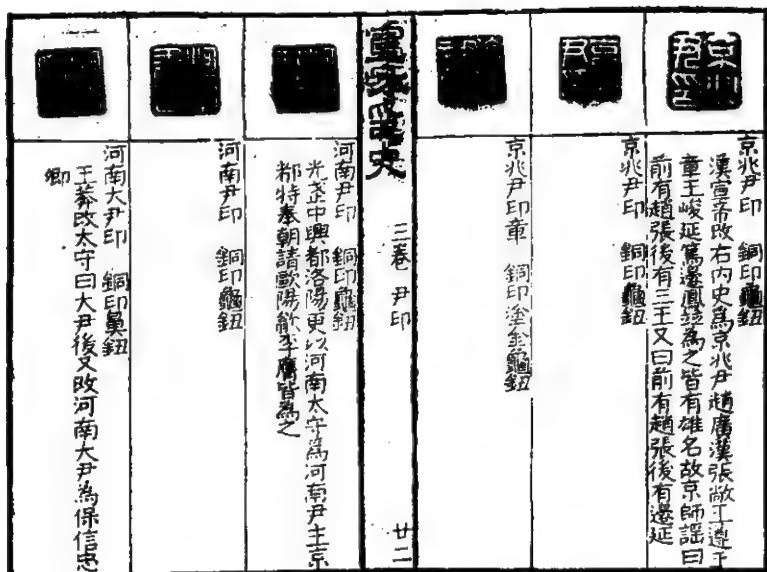 京兆尹印
京兆尹印　銅印龜鈕
漢宣帝改右內史爲京兆尹趙廣漢張敞王遵王
章王峻延篤邊鳳並為之皆有雄名故京師謡曰
前有趙張後有三王又曰前有趙張後有邊延
京兆尹印　銅印龜鈕
京兆尹印章　銅印塗金龜鈕
三卷　尹印
廿二
河南尹印　銅印龜鈕
光武中興都洛陽更以河南太守爲河南尹主京
都特奉朝請歐陽歙李膺皆爲之
河南尹印　銅印龜鈕
河南大尹印　銅印鼻鈕
王莽改太守曰大尹後又改河南大尹為保信忠
卿